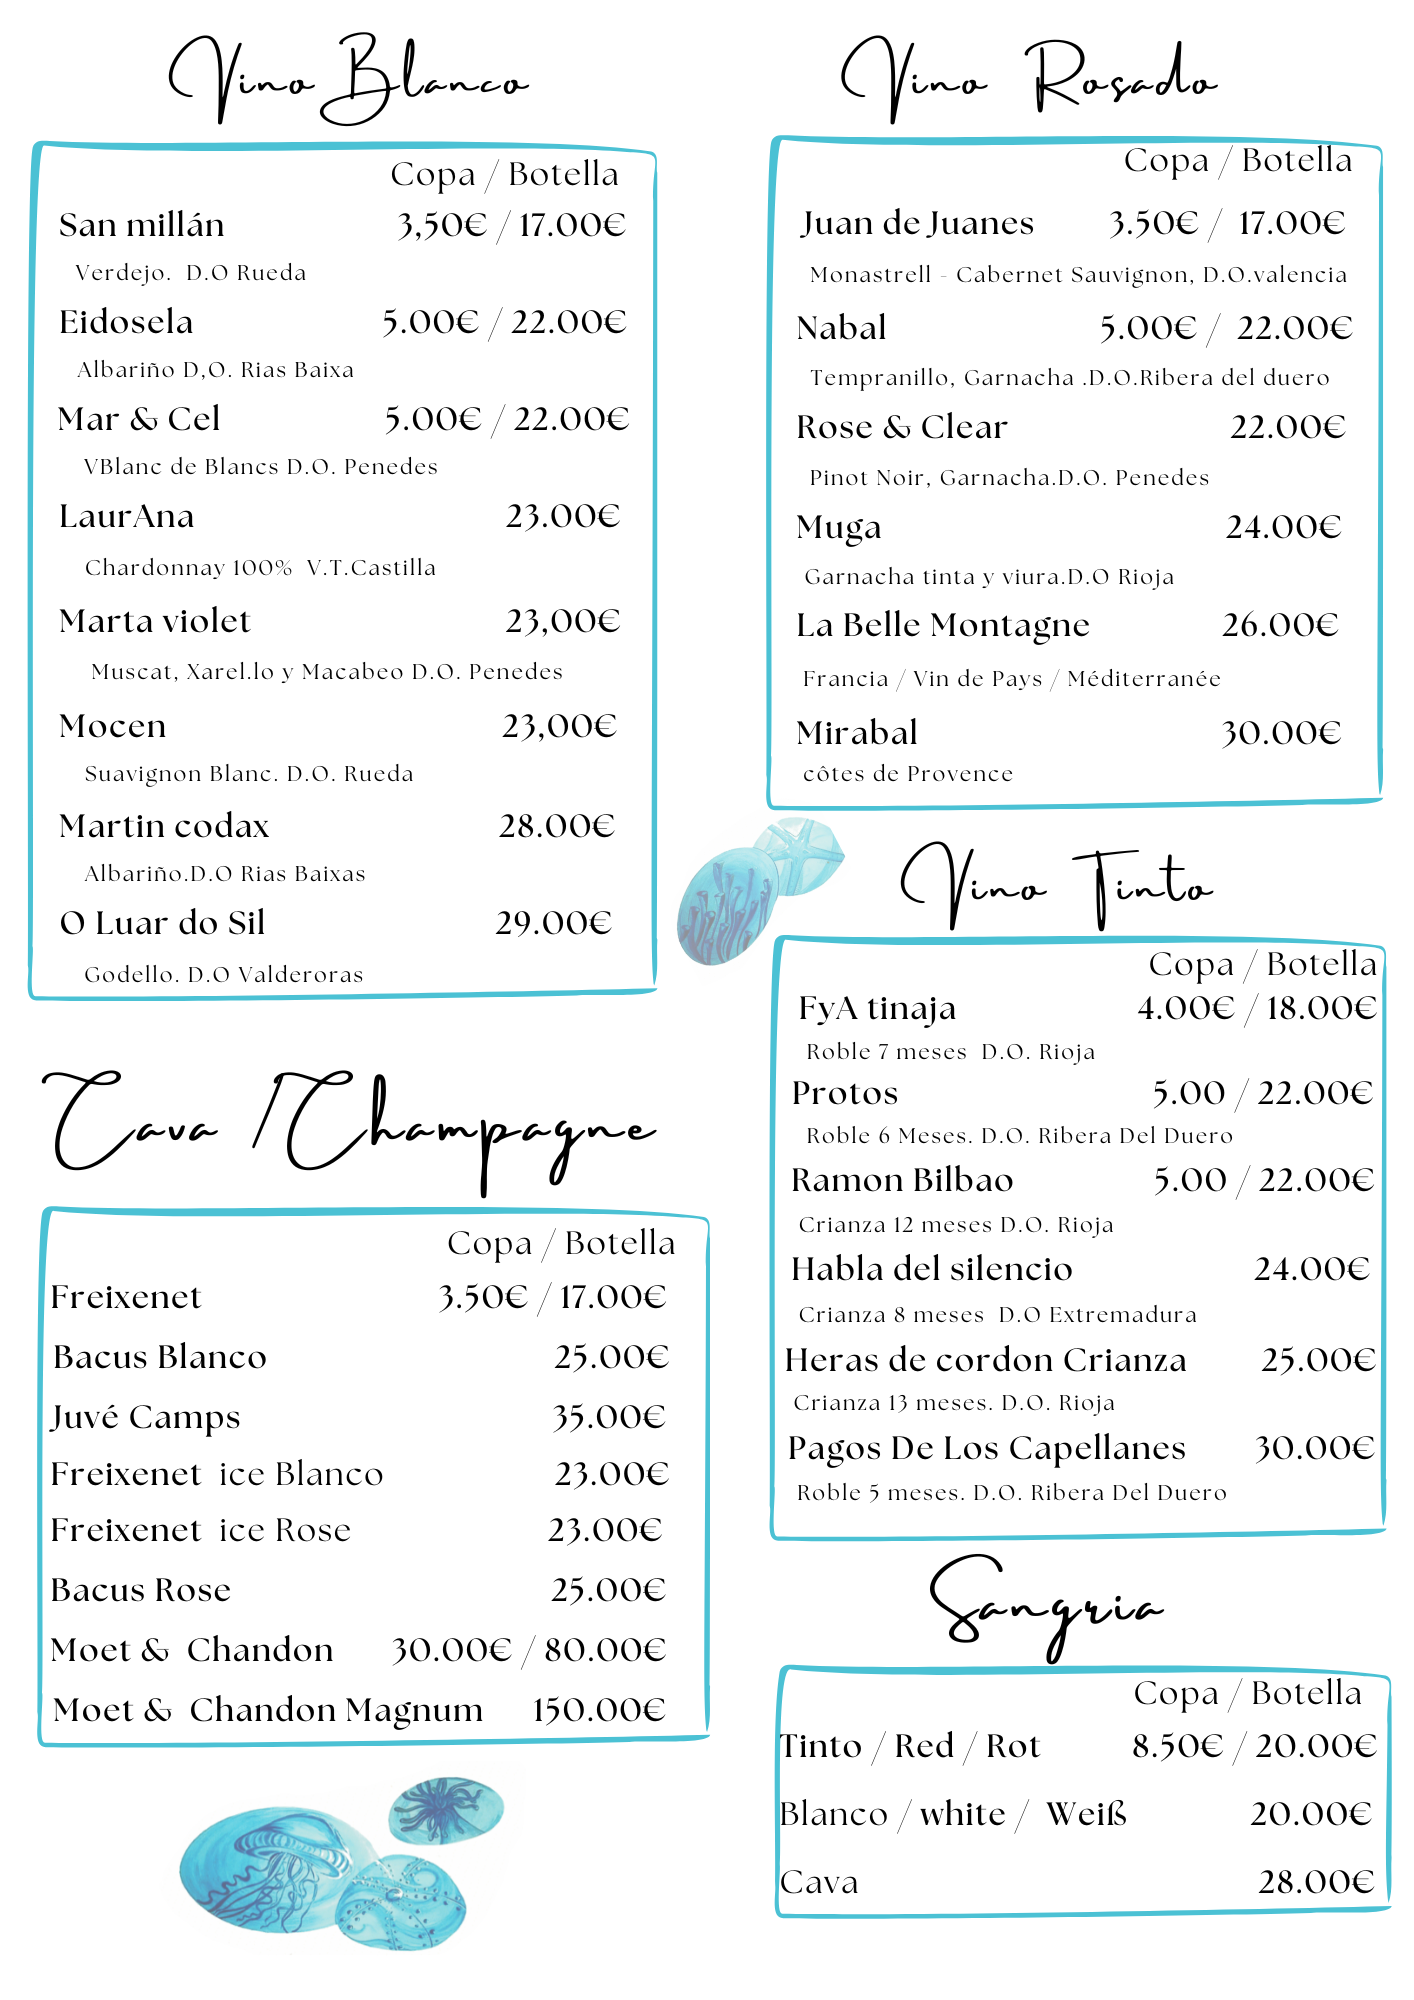 Vino Blanco
Copa / Botella
San millán 3,50€ / 17.00€
Verdejo. D.O Rueda
Eidosela 5.00€ / 22.00€
Albariño D,O. Rias Baixa
Mar & Cel 5.00€ / 22.00€
VBlanc de Blancs D.O. Penedes
LaurAna 23.00€
Chardonnay 100% V.T.Castilla
Marta violet 23,00€
Muscat, Xarel.lo y Macabeo D.O. Penedes
Mocen 23,00€
Suavignon Blanc. D.O. Rueda
Martin codax 28.00€
Albariño.D.O Rias Baixas
O Luar do Sil 29.00€
Godello. D.O Valderoras
Cava /Champagne
Copa / Botella
Freixenet 3.50€ / 17.00€
Bacus Blanco 25.00€
Juvé Camps 35.00€
Freixenet ice Blanco 23.00€
Freixenet ice Rose 23.00€
Bacus Rose 25.00€
Moet & Chandon 30.00€ / 80.00€
Moet & Chandon Magnum 150.00€
Vino Rosado
Copa / Botella
Juan de Juanes 3.50€ / 17.00€
Monastrell - Cabernet Sauvignon, D.O.valencia
Nabal 5.00€ / 22.00€
Tempranillo, Garnacha .D.O.Ribera del duero
Rose & Clear 22.00€
Pinot Noir, Garnacha.D.O. Penedes
Muga 24.00€
Garnacha tinta y viura.D.O Rioja
La Belle Montagne 26.00€
Francia / Vin de Pays / Méditerranée
Mirabal 30.00€
côtes de Provence
Vino Tinto
Copa / Botella
FyA tinaja 4.00€ / 18.00€
Roble 7 meses D.O. Rioja
Protos 5.00 / 22.00€
Roble 6 Meses. D.O. Ribera Del Duero
Ramon Bilbao 5.00 / 22.00€
Crianza 12 meses D.O. Rioja
Habla del silencio 24.00€
Crianza 8 meses D.O Extremadura
Heras de cordon Crianza 25.00€
Crianza 13 meses. D.O. Rioja
Pagos De Los Capellanes 30.00€
Roble 5 meses. D.O. Ribera Del Duero
Sangria
Copa / Botella
Tinto / Red / Rot 8.50€ / 20.00€
Blanco / white / Weiß 20.00€
Cava 28.00€